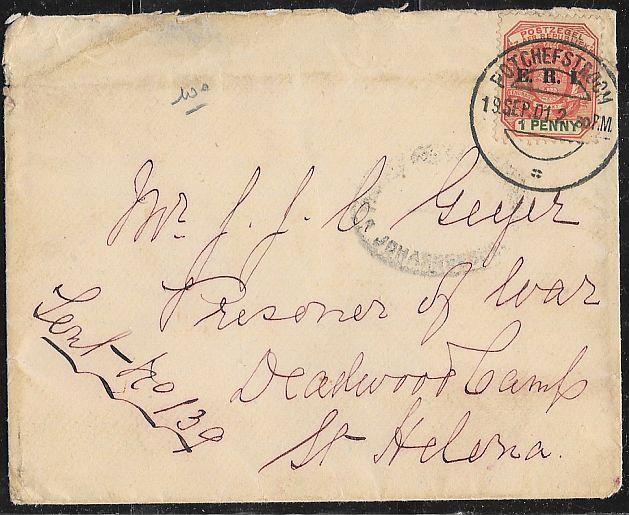 POSTZEGEL
E. R. I.
1 PENNY
POTCHEFSTROOM
19 SEP 01 2 P.M.
Mr. J. J. C Geyer
Prisoner of War
Deadwood Camp
St Helena.
Tent No 139
JOHANNESBURG